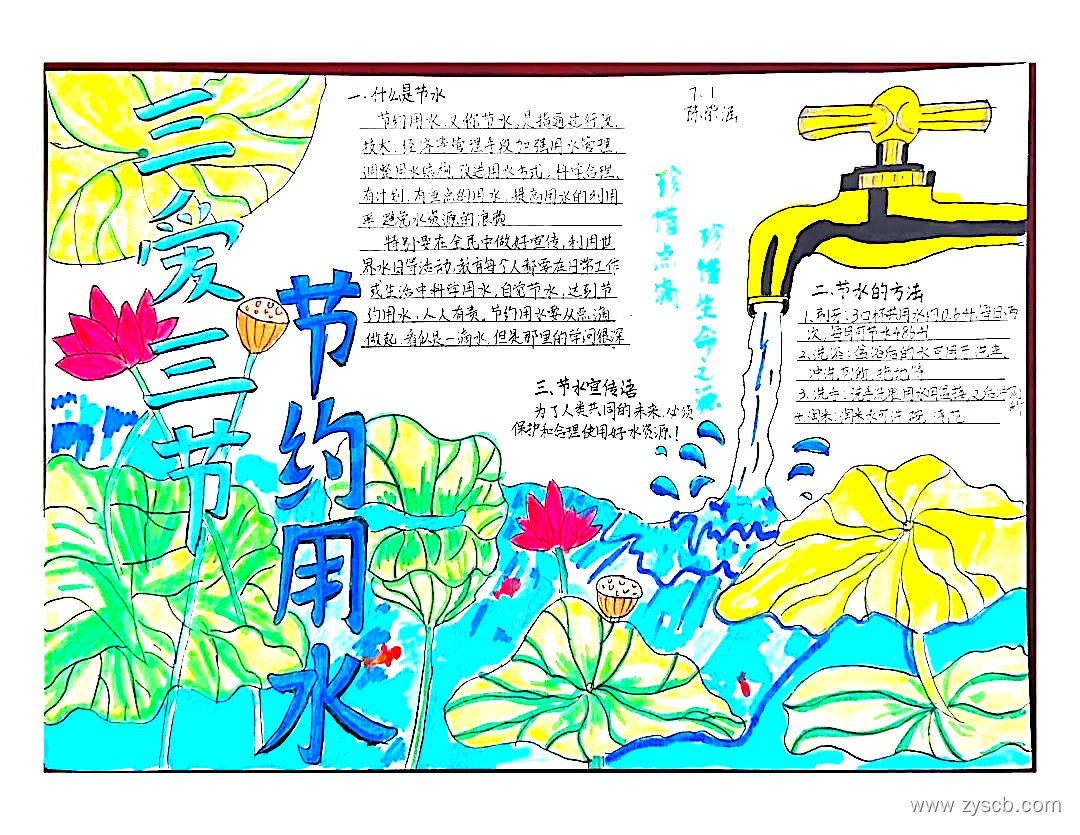 三爱三节
节约用水
一.什么是节水
节约用水,又称节水,是指通过行政、
技术、经济等管理手段加强用水管理,
调整用水结构,改进用水方式,科学合理、
有计划、有重点的用水,提高用水的利用
率,避免水资源的浪费
特别要在全民中做好宣传,利用世
界水日等活动,教育每个人都要在日常工作
或生活中科学用水,自觉节水,达到节
约用水,人人有责。节约用水要从点滴
做起,看似是一滴水,但是那里的学问很深
三.节水宣传语
为了人类共同的未来,必须
保护和合理使用好水资源!
7.1
珍惜点滴
珍惜生命之源
二.节水的方法
1.刷牙:3口杯共用水约0.6升,每日两
次,每日可节水486升
2.洗浴:
冲洗厕所、拖地等
3.洗手:
4.淘米:淘米水可洗
www.zyscb.com